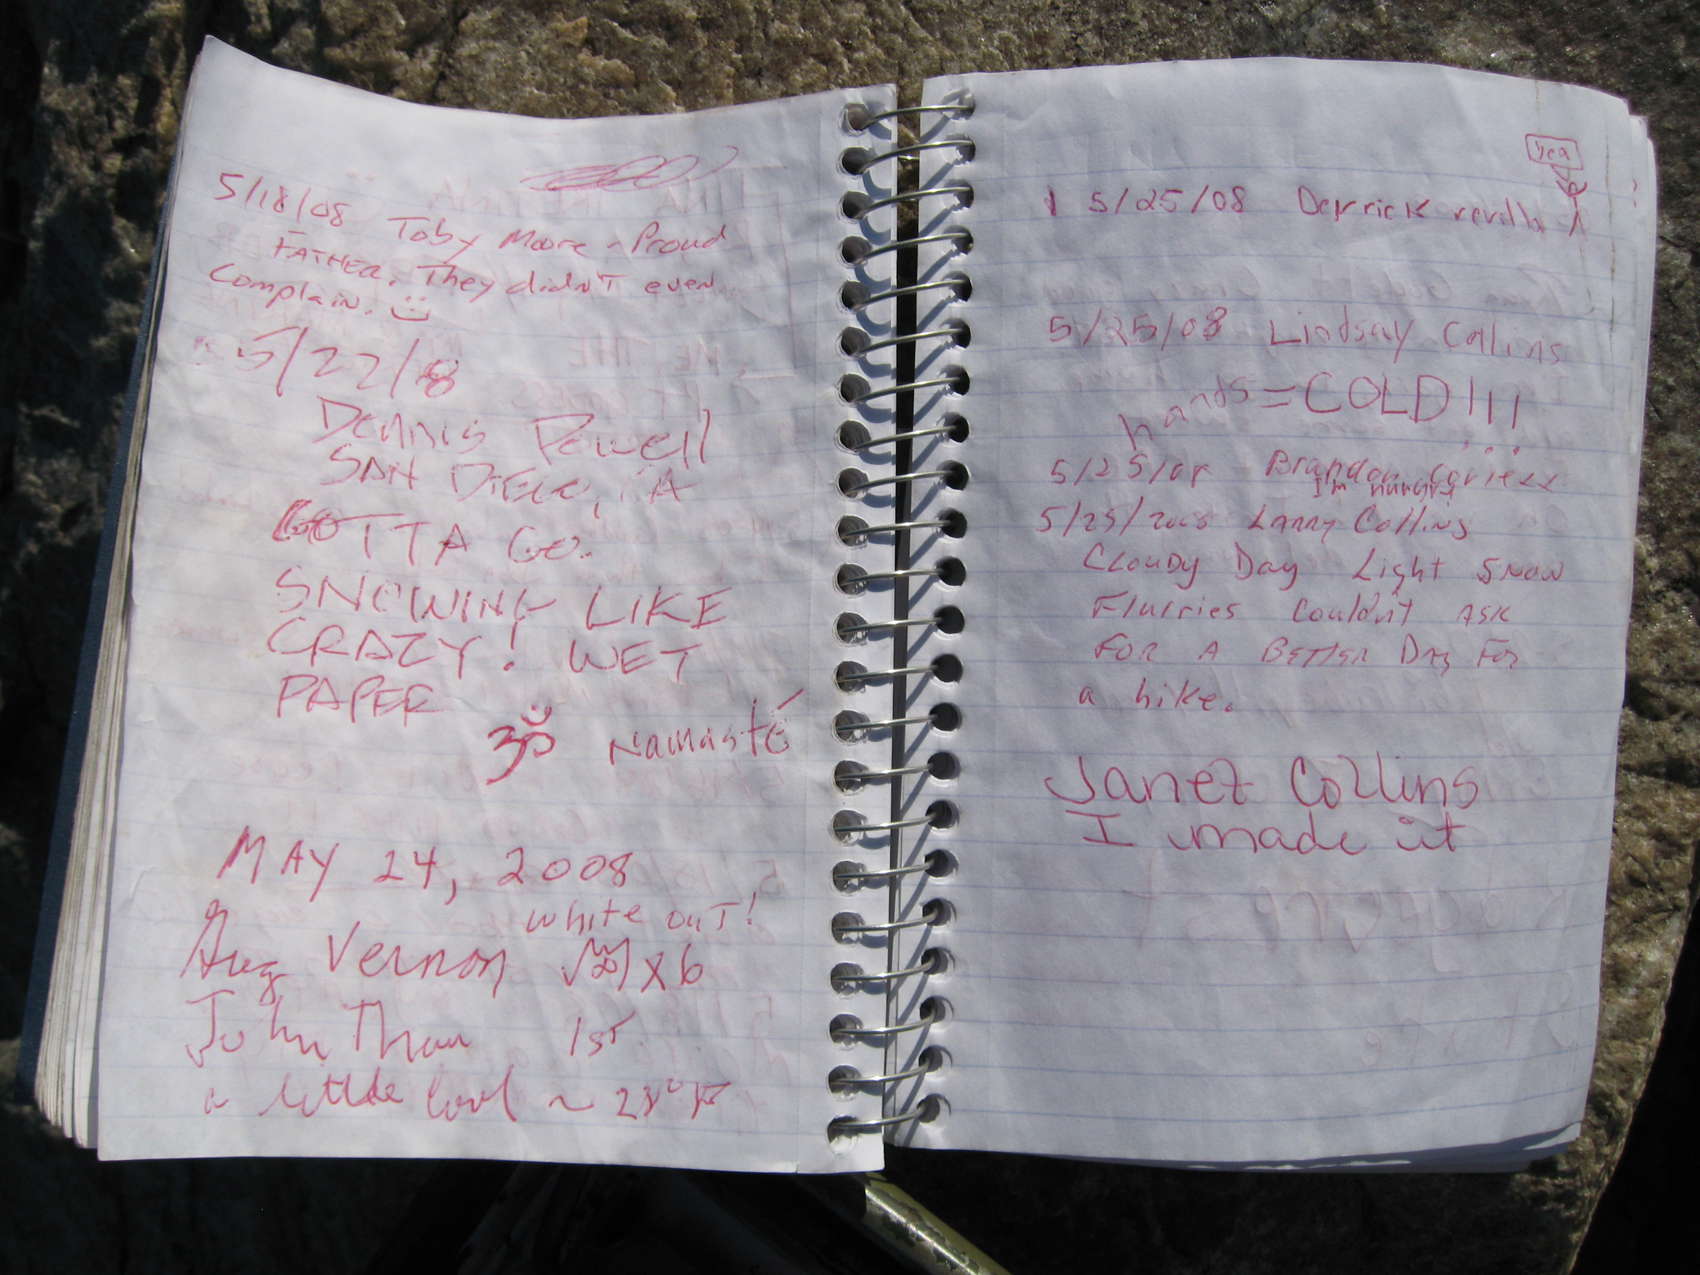 5/18/08 Toby Moore ~ Proud
FATHER. They didn't even
Complain.
5/22/8
DENNIS Powell
SAN DIEGO, CA
GOTTA GO.
SNOWING LIKE
CRAZY! WET
PAPER
ॐ Namasté
MAY 24, 2008
White out!
Vernon x 6
John 1st
a little cool ~ 28°F
yea
5/25/08 Derrick revilla
5/25/08 Lindsay Collins
hands = COLD!!!
5/25/08 Brandon
I'm hungry
5/25/2008 Larry Collins
Cloudy Day Light Snow
Flurries Couldn't ask
For A Better Day For
a hike.
Janet Collins
I made it